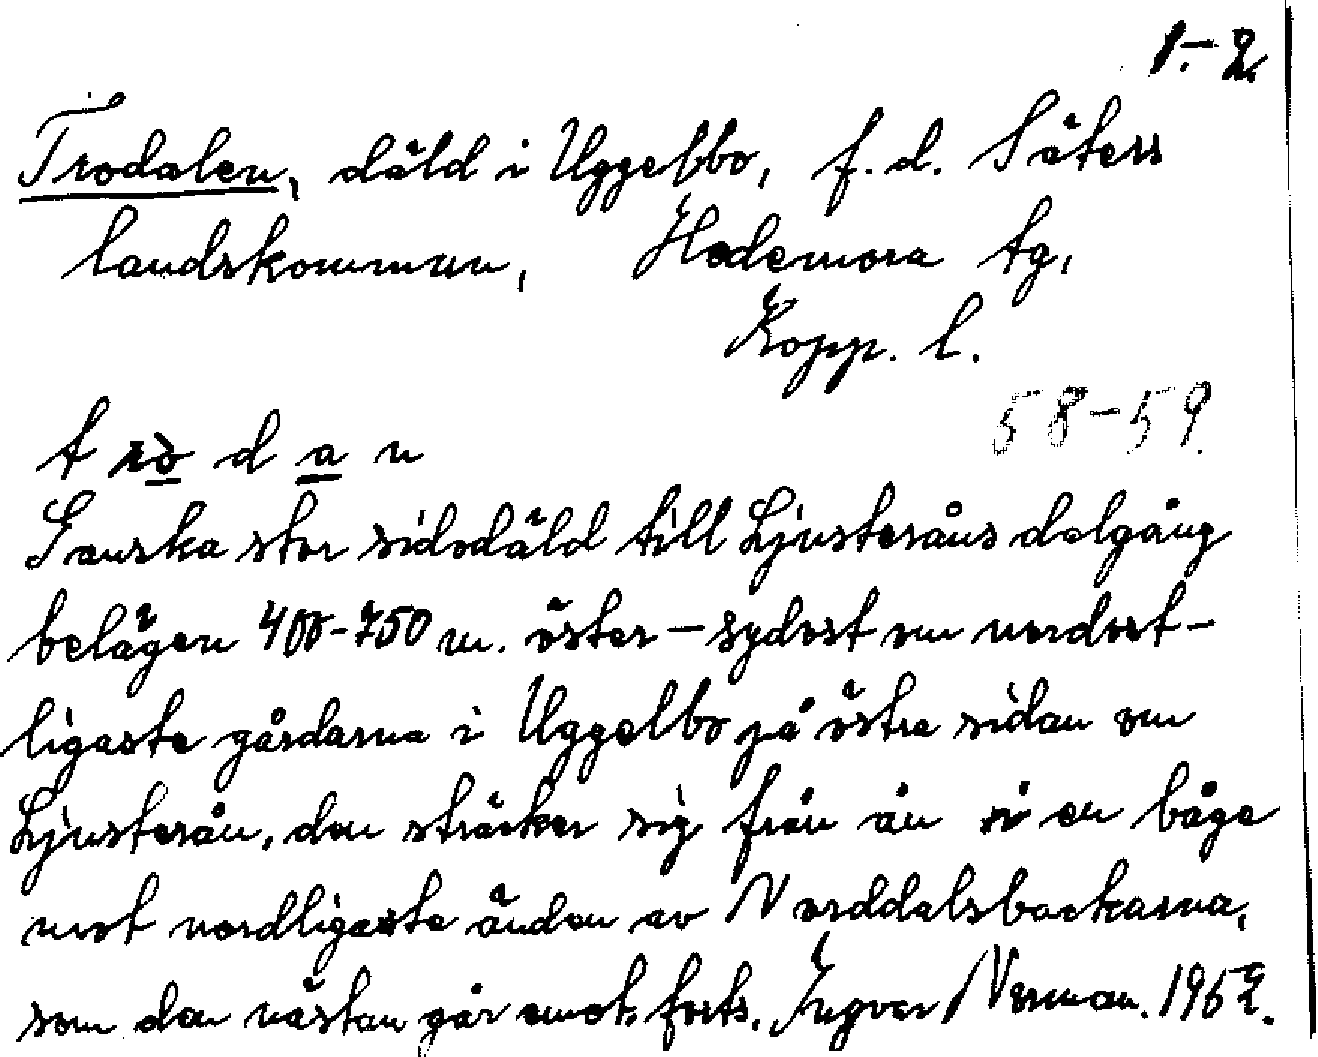 1.-2.
Trodalen, däld i Uggelbo, f.d. Säters
landskommun, Hedemora tg,
Kopp. l.
58-59.
t rò d a n
Ganska stor sidodäld till Ljusteråns dalgång
belägen 400-750 m. öster-sydost om nordost-
ligaste gårdarna i Uggelbo på östra sidan om
Ljusterån, den sträcker sig från ån i en båge
mot nordligaste änden av Norddalsbackarna,
som den nästan går emot. forts. Yngver Norman. 1962.